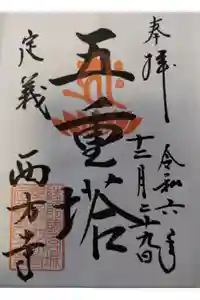 奉拝
令和六年
十二月二十九日
五重塔
定義
西方寺